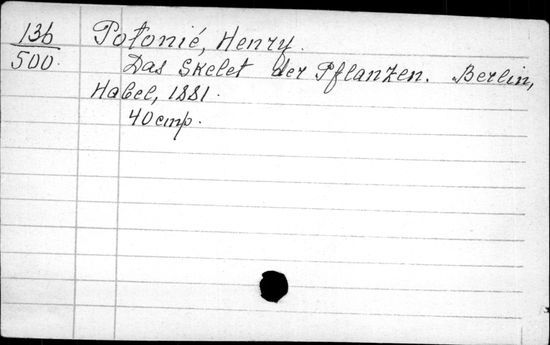 136 Potonié, Henry.
500. Das Skelet der Pflanzen. Berlin,
Habel, 1881.
40 стр.